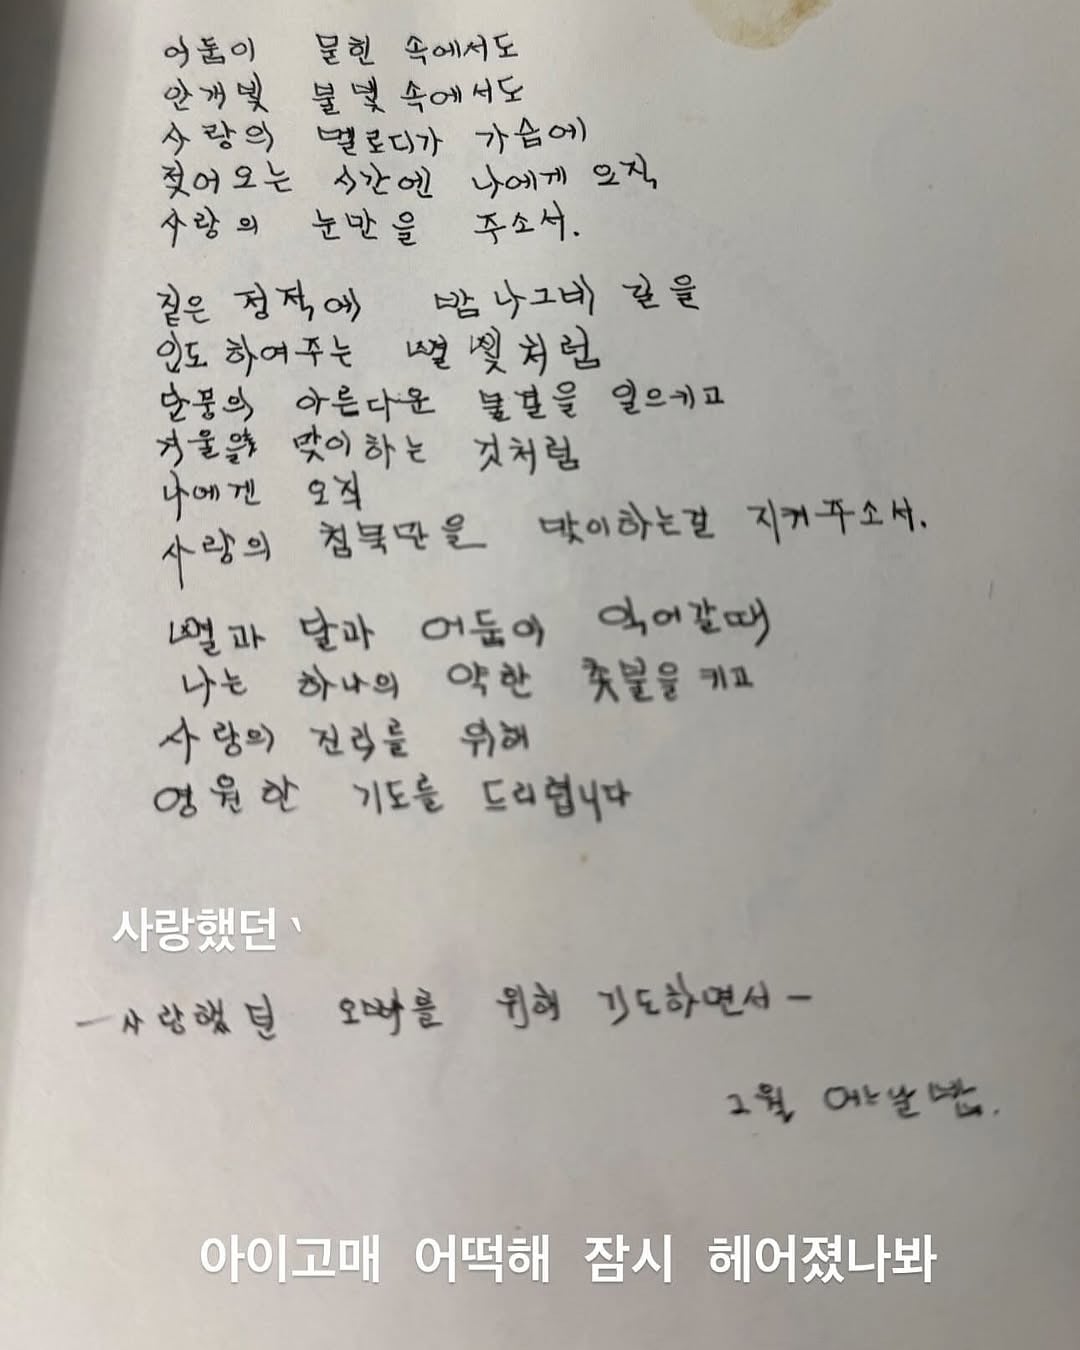 어둠이 묻힌 속에서도
안개빛 불빛 속에서도
사랑의 멜로디가 가슴에
젖어오는 시간엔 나에게 오직
사랑의 눈만을 주소서.
짙은 정적에 밤나그네 길을
인도하여주는 별빛처럼
단풍의 아름다운 불결을 일으키고
겨울을 맞이하는 것처럼
나에겐 오직
사랑의 침묵만을 맞이하는걸 지켜주소서.
별과 달과 어둠이 익어갈때
나는 하나의 약한 촛불을 키고
사랑의 진리를 위해
영원한 기도를 드리렵니다
사랑했던、
－사랑했던 오빠를 위해 기도하면서－
2월 어느날 밤.
아이고매 어떡해 잠시 헤어졌나봐